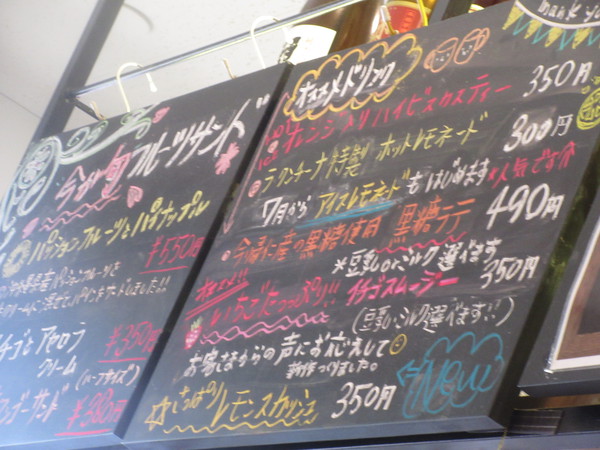 今が旬フルーツサンド
パッションフルーツとパイナップル
¥550円
アセロラ
クリーム
¥350円
(ハーフサイズ)
サンド ¥380円
オススメドリンク
オレンジ入りハイビスカスティー 350円
ラクンチーナ特製 ホットレモネード 300円
7月から アイスレモネードもはじめます *人気です
今帰仁産の黒糖使用 黒糖ラテ 490円
*豆乳orミルク 選べます
オススメ!!
いちごたっぷり!! イチゴスムージー 350円
(豆乳・ミルク選べます!!)
お客さまからの声にお応えして
新作つくりました。
さっぱり レモンスカッシュ 350円
New